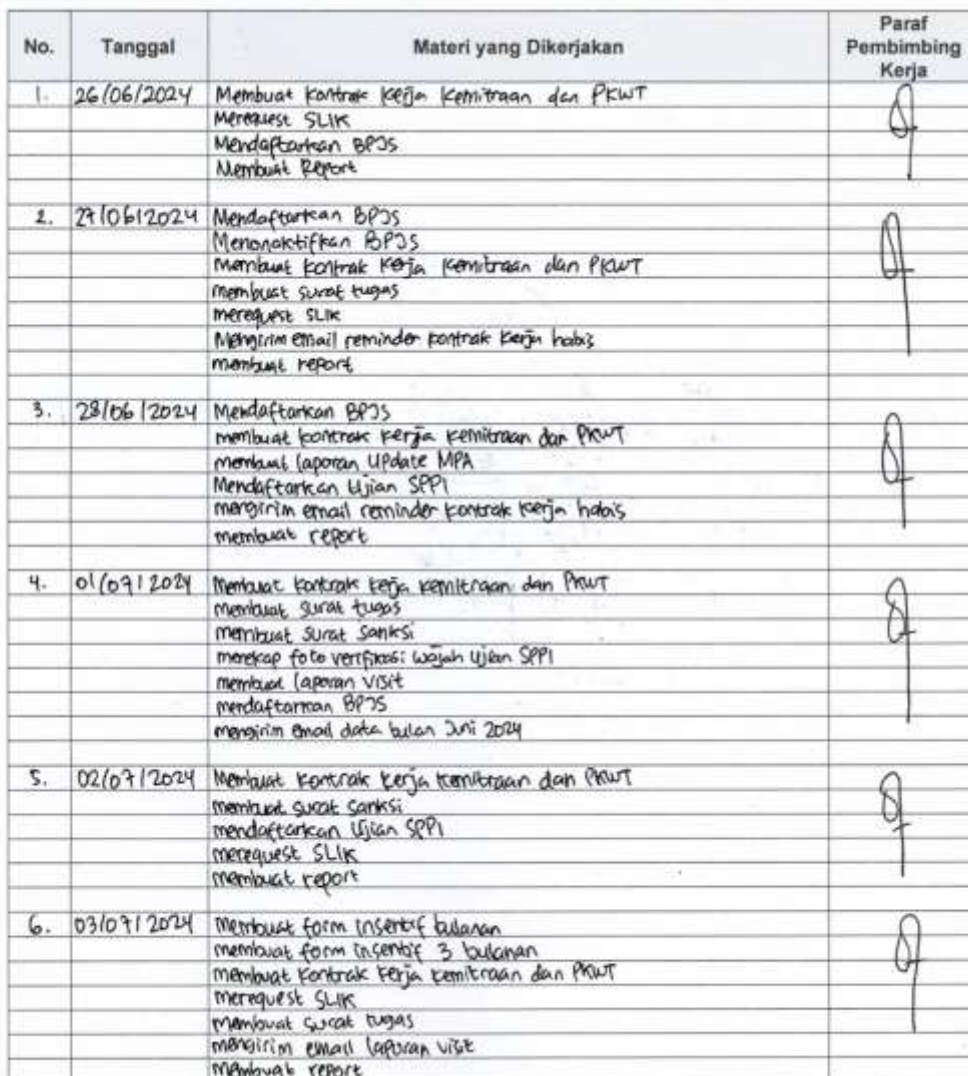 No. Tanggal Materi yang Dikerjakan Paraf Pembimbing Kerja
1. 26/06/2024 Membuat kontrak kerja kemitraan dan PKWT
Merequest SLIK
Mendaftarkan BPJS
Membuat Report
2. 27/06/2024 Mendaftarkan BPJS
Menonaktifkan BPJS
Membuat kontrak kerja kemitraan dan PKWT
membuat surat tugas
merequest SLIK
Mengirim email reminder kontrak kerja habis
membuat report
3. 28/06/2024 Mendaftarkan BPJS
membuat kontrak kerja kemitraan dan PKWT
membuat laporan update MPA
Mendaftarkan Ujian SPPI
mengirim email reminder kontrak kerja habis
membuat report
4. 01/07/2024 Membuat kontrak kerja kemitraan dan PKWT
membuat surat tugas
membuat surat sanksi
merekap foto verifikasi wajah ujian SPPI
membuat laporan visit
mendaftarkan BPJS
mengirim email data bulan Juni 2024
5. 02/07/2024 Membuat kontrak kerja kemitraan dan PKWT
membuat surat sanksi
mendaftarkan Ujian SPPI
merequest SLIK
membuat report
6. 03/07/2024 Membuat form insentif bulanan
membuat form insentif 3 bulanan
membuat kontrak kerja kemitraan dan PKWT
merequest SLIK
membuat surat tugas
mengirim email laporan visit
membuat report